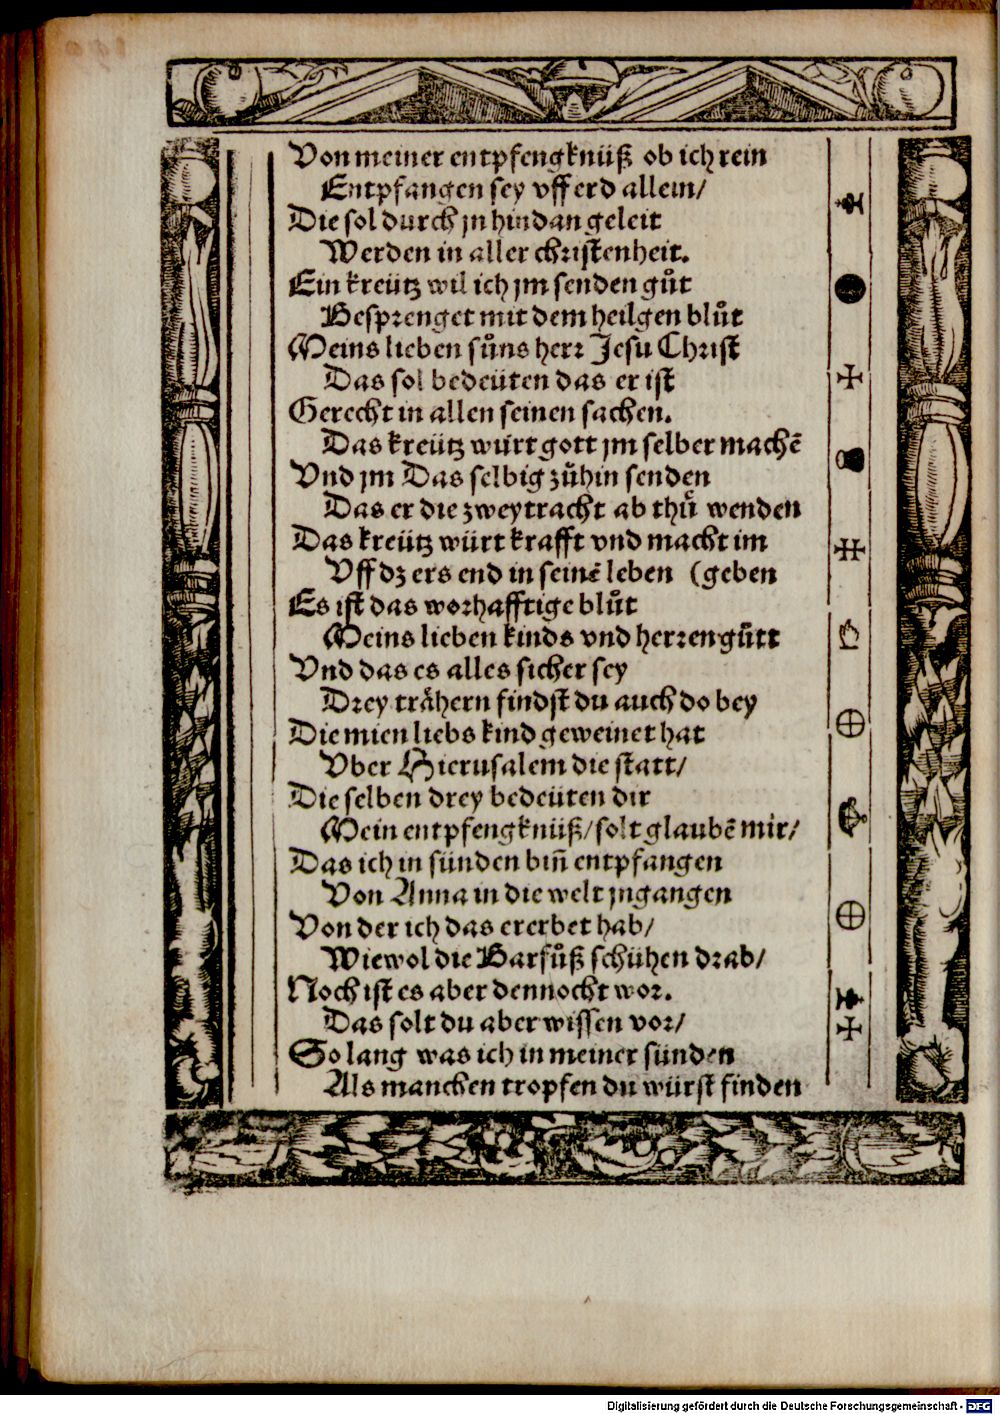 Von meiner entpfengknüß ob ich rein
Entpfangen sey vff erd allein/
Die sol durch jn hindan geleit
Werden in aller christenheit.
Ein kreütz wil ich jm senden gůt
Besprenget mit dem heilgen blůt
Meins lieben sůns herr Jesu Christ
Das sol bedeüten das er ist
Gerecht in allen seinen sachen.
Das kreütz würt gott jm selber machē
Vnd jm Das selbig zůhin senden
Das er die zweytracht ab thů wenden
Das kreütz würt krafft vnd macht im
Vff dz ers end in seinē leben (geben
Es ist das worhafftige blůt
Meins lieben kinds vnd herren gůtt
Vnd das es alles sicher sey
Drey trähern findst du auch do bey
Die mien liebs kind geweinet hat
Vber Hierusalem die statt/
Die selben drey bedeüten dir
Mein entpfengknüß/ solt glaubē mir/
Das ich in sünden bin̄ entpfangen
Von Anna in die welt jngangen
Von der ich das ererbet hab/
Wiewol die Barfůß schühen drab/
Noch ist es aber dennocht wor.
Das solt du aber wissen vor/
So lang was ich in meiner sünden
Als manchen tropfen du würst finden
Digitalisierung gefördert durch die Deutsche Forschungsgemeinschaft - DFG